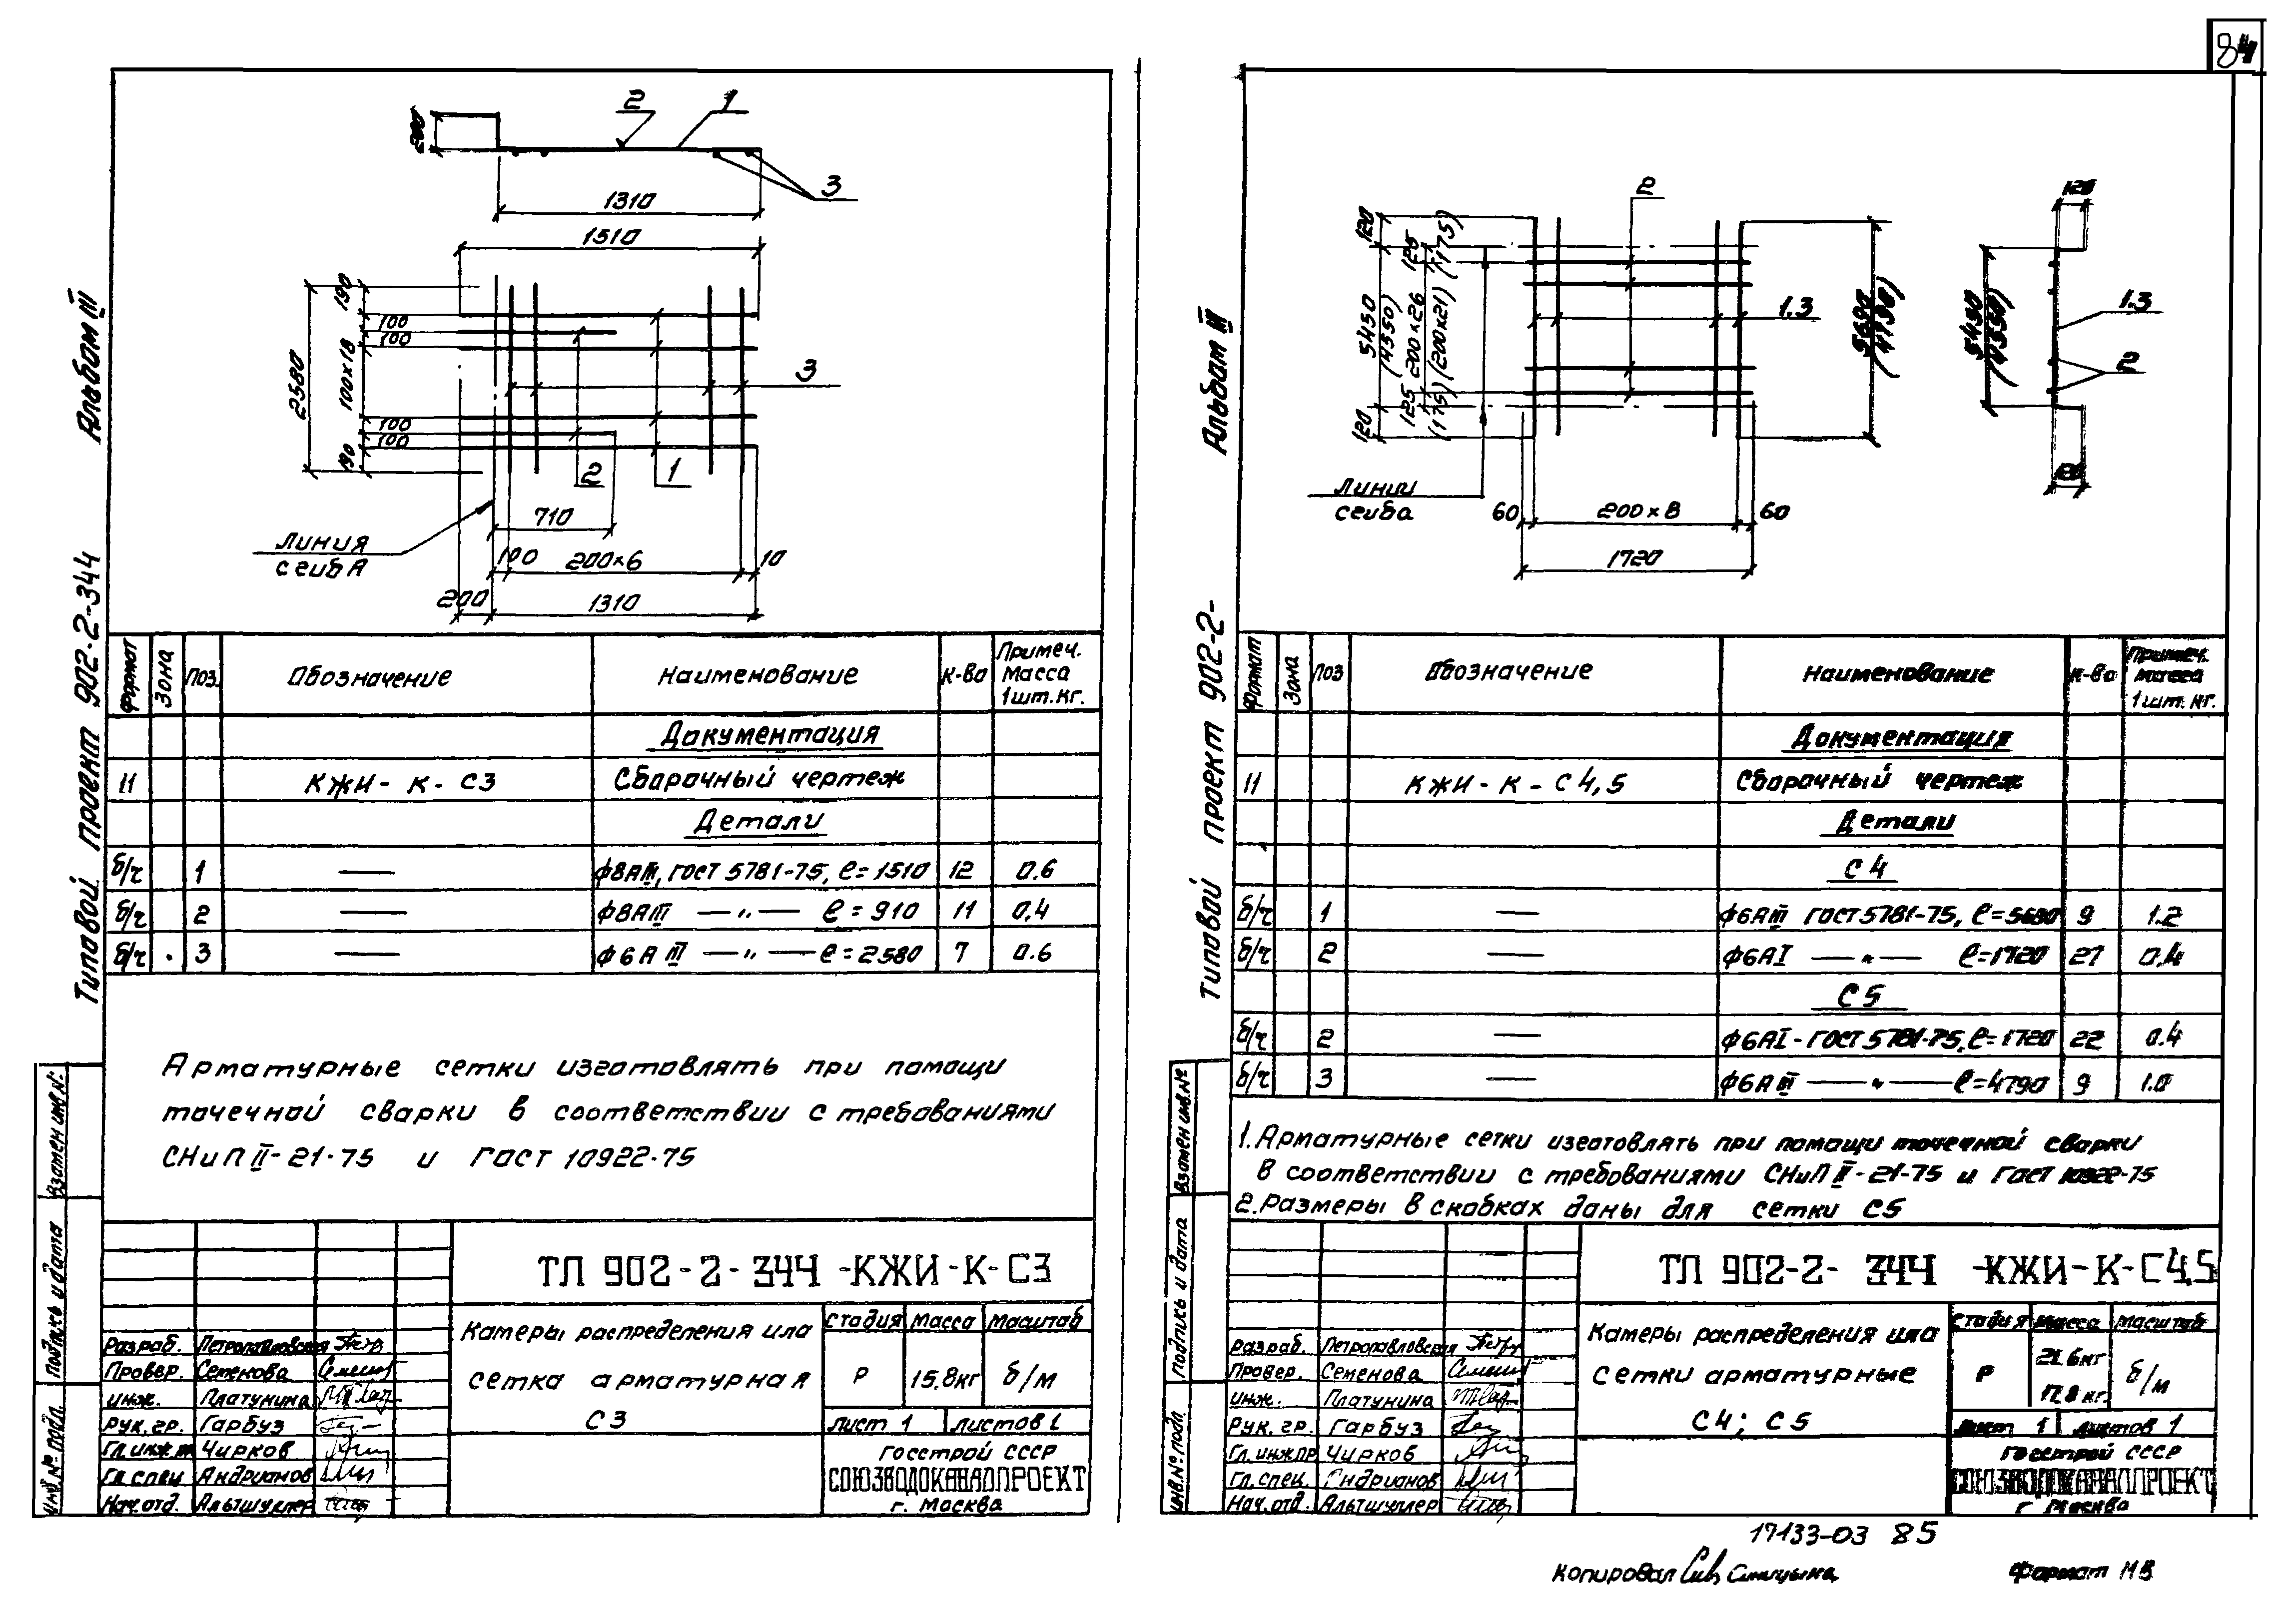 84
Альбом III
Типовой проект 902-2-344
200
2
1
3
1310
1510
2580
190
100
100
100×18
100
100
190
3
2
1
710
Линия
сгиба
100
200×6
10
200
1310
Формат
Зона
Поз.
Обозначение
Наименование
К-во
Примеч.
Масса
1 шт. кг.
Документация
11 КЖИ-К-С3 Сборочный чертеж
Детали
б/ч 1 — ф8АIII, ГОСТ 5781-75, ℓ=1510 12 0.6
б/ч 2 — ф8АIII —"— ℓ=910 11 0,4
б/ч 3 — ф6АIII —"— ℓ=2580 7 0.6
Арматурные сетки изготовлять при помощи
точечной сварки в соответствии с требованиями
СНиП II-21-75 и ГОСТ 10922-75
Взамен инв.№
Подпись и дата
Инв.№ подл.
ТП 902-2-344-КЖИ-К-С3
Камеры распределения ила
сетка арматурная
С3
Стадия Масса Масштаб
Р 15.8кг б/м
Лист 1 Листов 1
Госстрой СССР
СОЮЗВОДОКАНАЛПРОЕКТ
г. Москва
Разраб. Петропавловская
Провер. Семенова
Инж. Платунина
Рук. гр. Гарбуз
Гл. инж. пр. Чирков
Гл. спец. Андрианов
Нач. отд. Альтшуллер
Альбом III
Типовой проект 902-2-
2
120
125
(175)
5450
(4550)
200×26
(200×21)
125
(175)
120
1.3
5690
(4790)
Линии
сгиба
60
200×8
60
1720
120
5450
(4550)
1.3
2
120
Формат
Зона
Поз
Обозначение
Наименование
К-во
Примеч.
Масса
1 шт. кг.
Документация
11 КЖИ-К-С4,5 Сборочный чертеж
Детали
С4
б/ч 1 — ф6АIII ГОСТ 5781-75, ℓ=5690 9 1.2
б/ч 2 — ф6АI —"— ℓ=1720 27 0.4
С5
б/ч 2 — ф6АI-ГОСТ 5781-75, ℓ=1720 22 0.4
б/ч 3 — ф6АIII —"— ℓ=4790 9 1.0
1. Арматурные сетки изготовлять при помощи точечной сварки
в соответствии с требованиями СНиП II-21-75 и ГОСТ 10922-75
2. Размеры в скобках даны для сетки С5
Взамен инв.№
Подпись и дата
Инв.№ подл
ТП 902-2-344-КЖИ-К-С4,5
Камеры распределения ила
сетки арматурные
С4; С5
Стадия Масса Масштаб
Р 21.6кг б/м
17.8 кг.
Лист 1 Листов 1
Госстрой СССР
СОЮЗВОДОКАНАЛПРОЕКТ
г. Москва
Разраб. Петропавловская
Провер. Семенова
Инж. Платунина
Рук. гр. Гарбуз
Гл. инж. пр Чирков
Гл. спец. Андрианов
Нач. отд. Альтшуллер
17133-03 85
Копировал Синицына
Формат